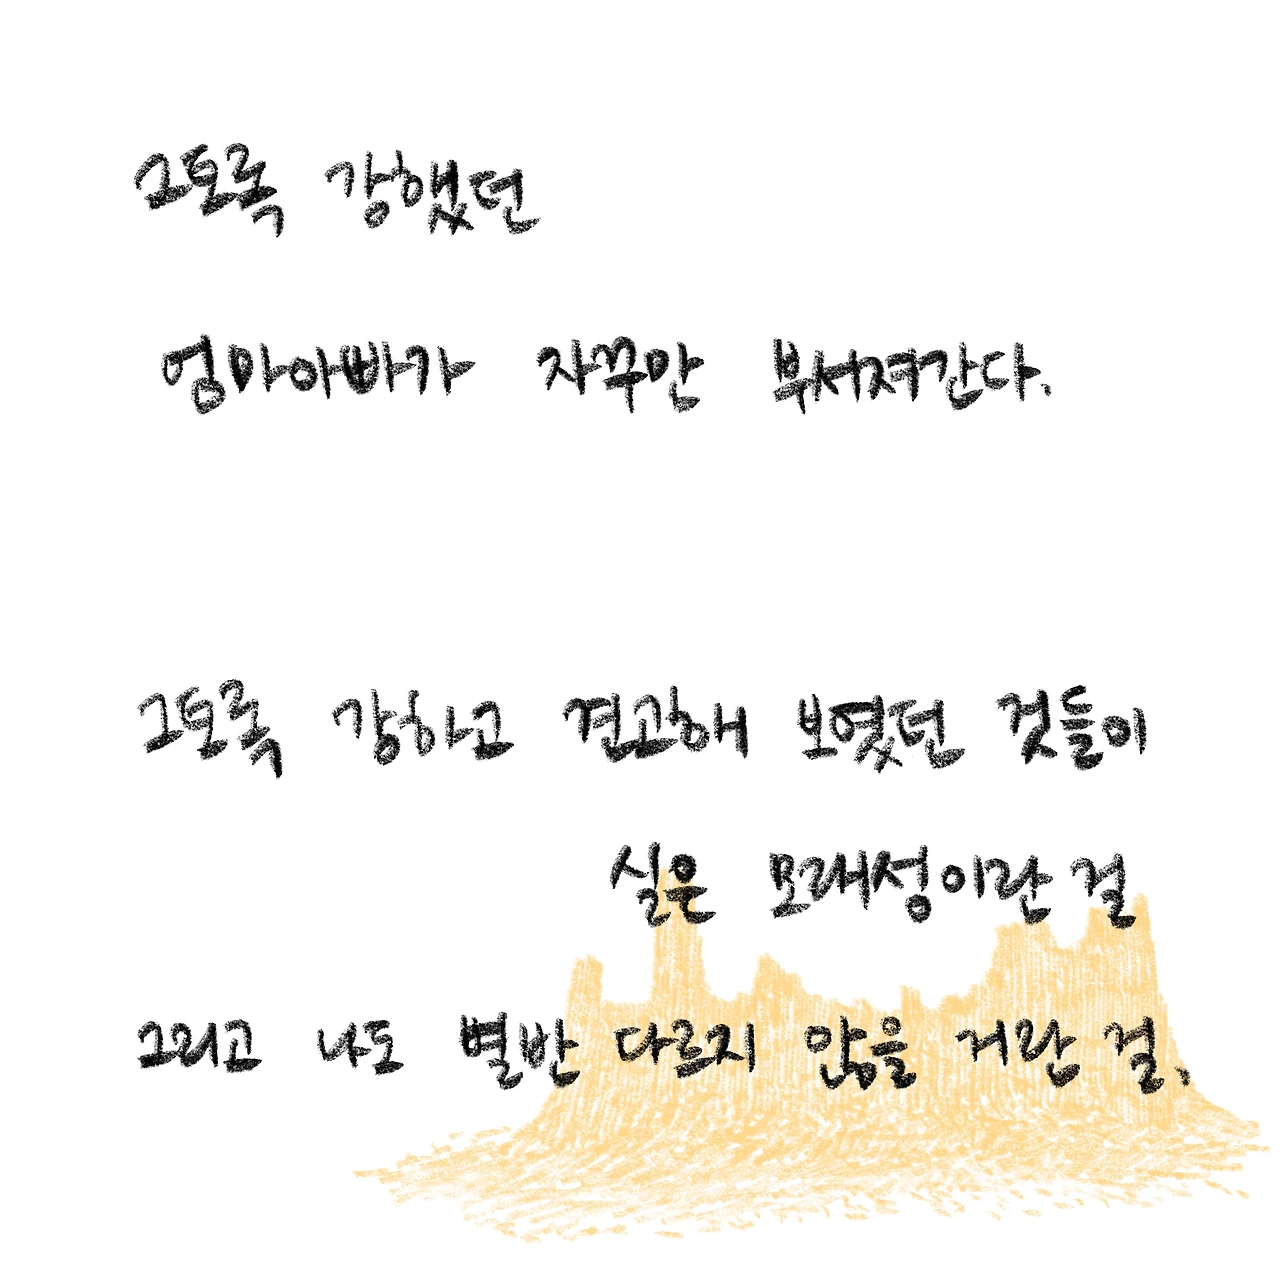 그토록 강했던
엄마아빠가 자꾸만 부서져간다.
그토록 강하고 견고해 보였던 것들이
실은 모래성이란 걸
그리고 나도 별반 다르지 않을 거란 걸.